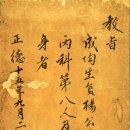 教旨
成均生員楊公
丙科第八人及
身者
正德十五年九月二